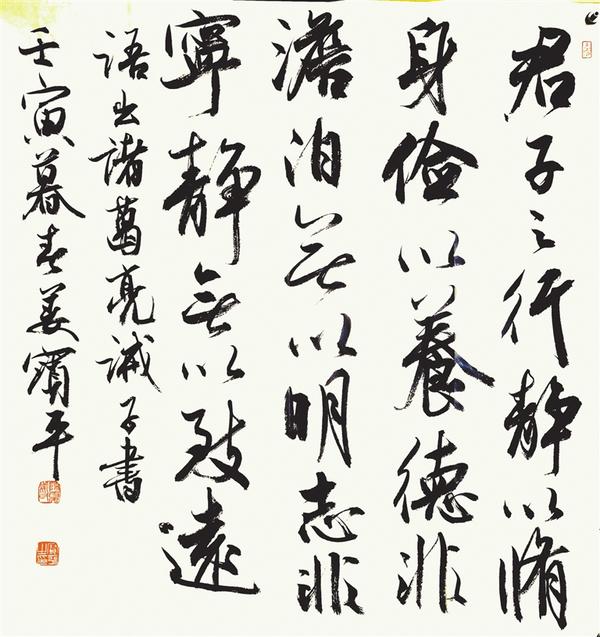 君子之行静以脩
身儉以養德非
澹泊無以明志非
寧静無以致遠
語出諸葛亮誡子書
壬寅暮春姜賓平